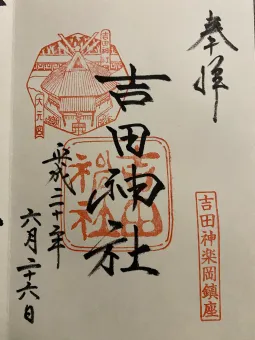 奉拝
吉田神楽岡鎮座
吉田神社
吉田
神社
大元宮
平成三十年
六月二十六日